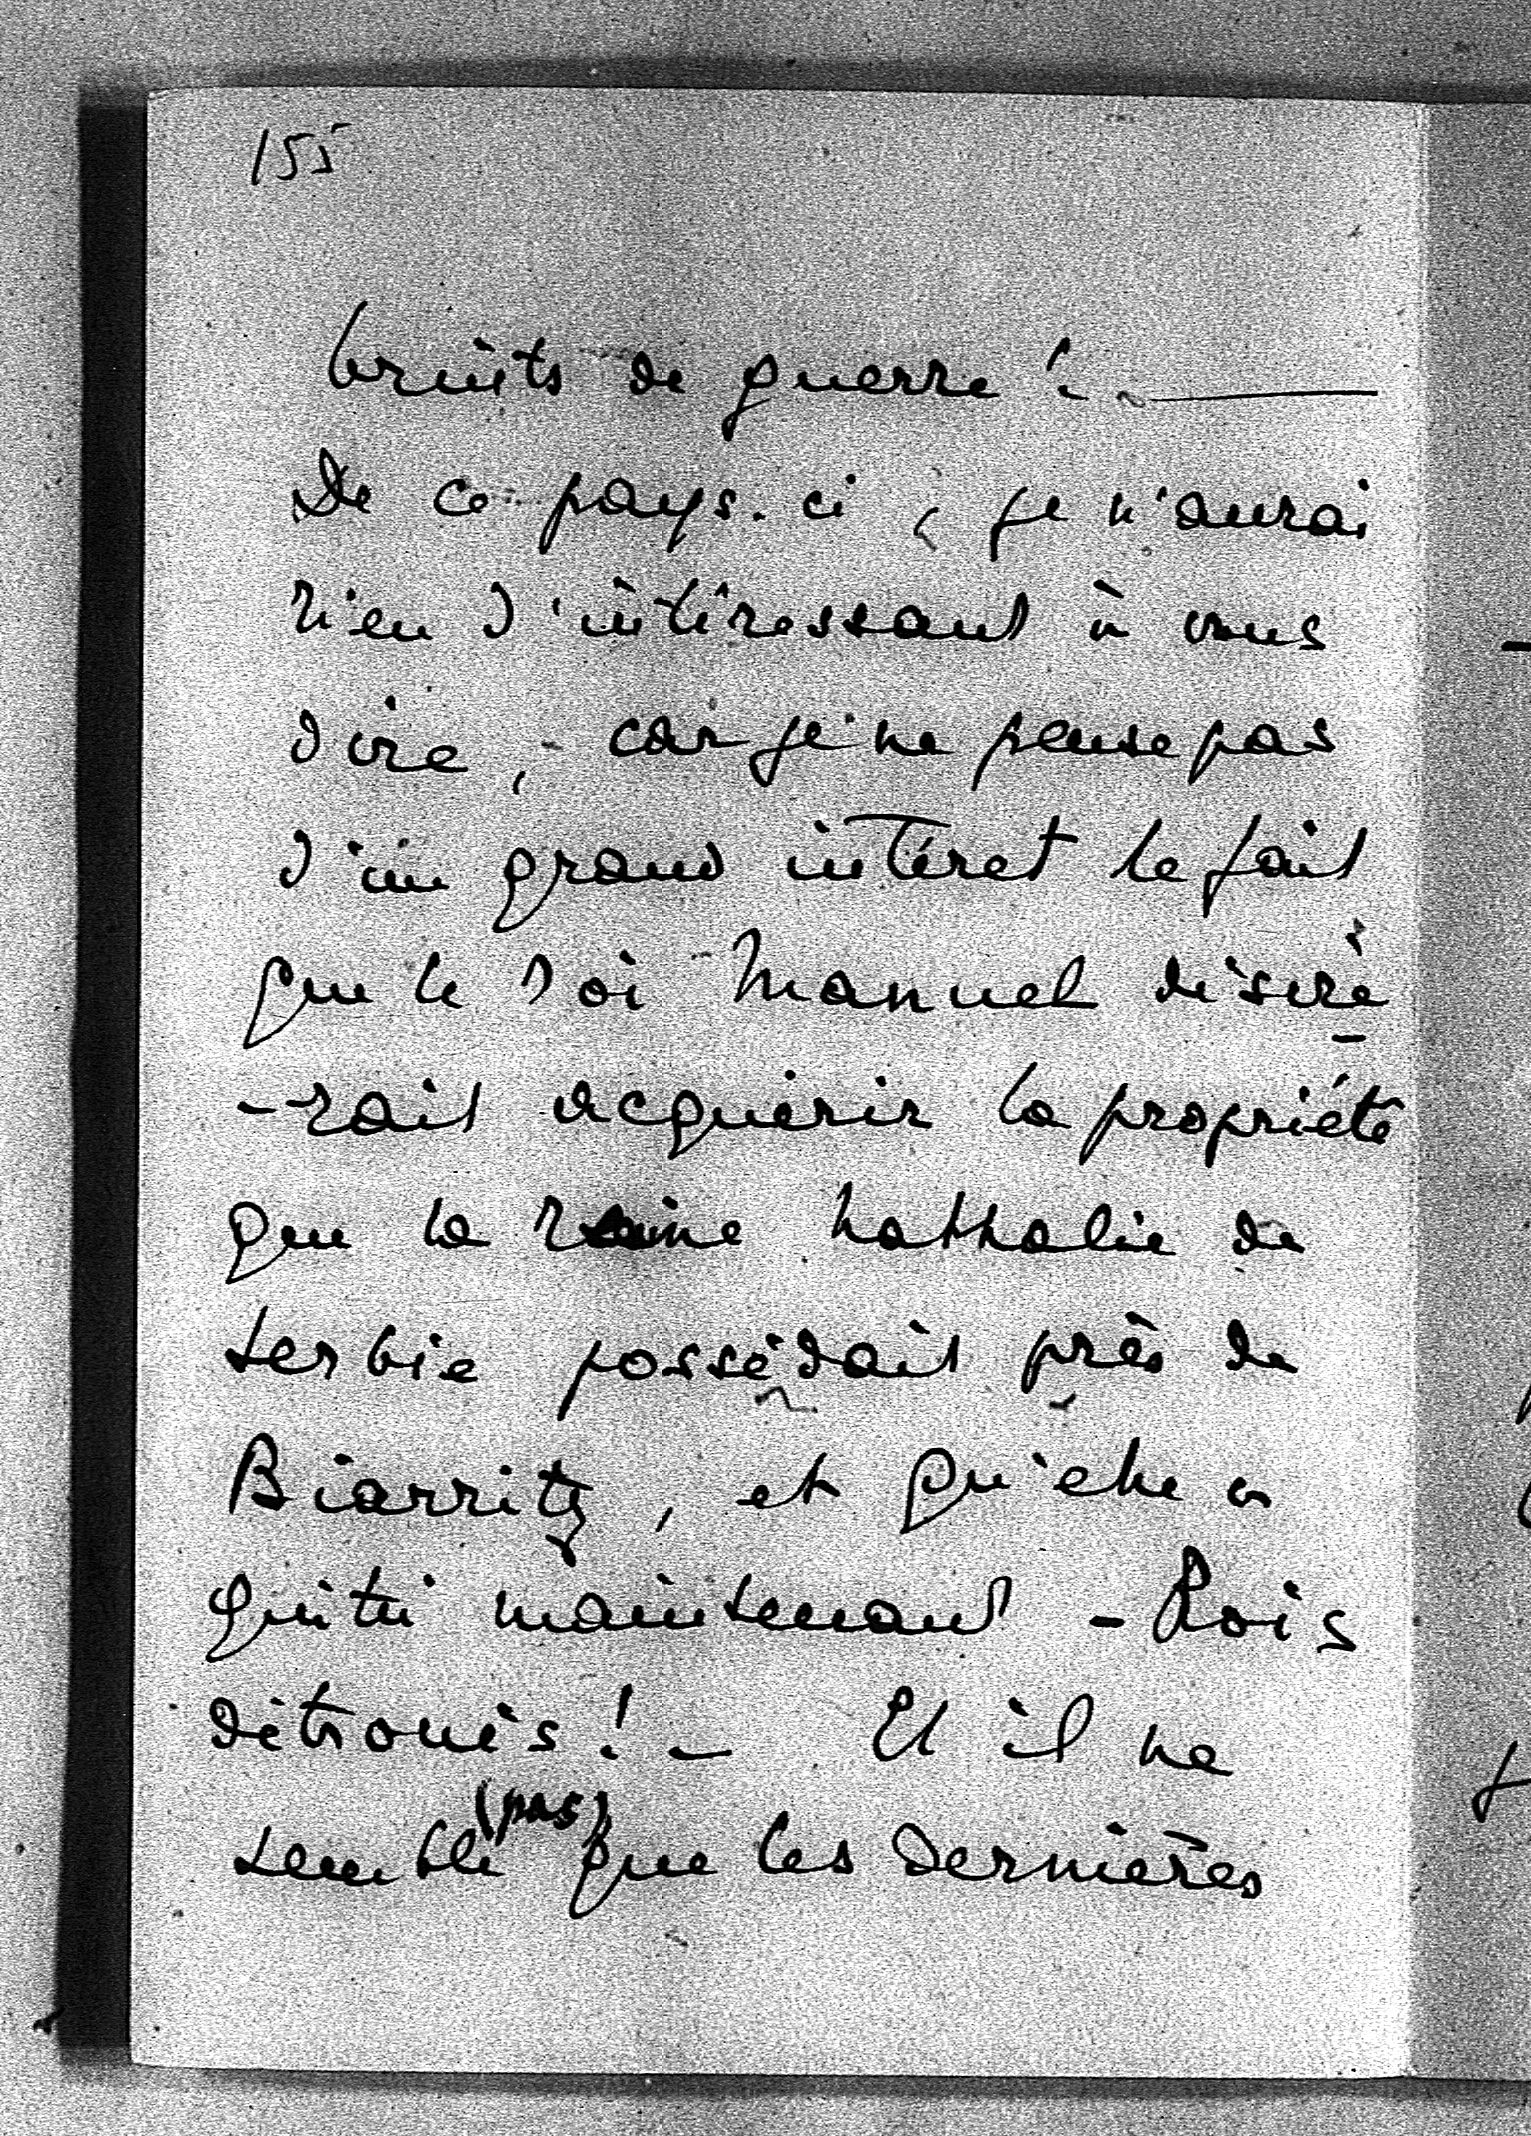 155
bruits de guerre !.. ———
De ce pays-ci, je n'aurai
rien d'intéressant à vous
dire, - car je ne pense pas
d'un grand intéret le fait
que le roi Manuel désire
-rait acquérir la propriété
que la reine Nathalie de
Serbie possédait près de
Biarritz, et qu'elle a
quitté maintenant - Rois
détronés ! - Et il ne
semble (pas) que les dernières